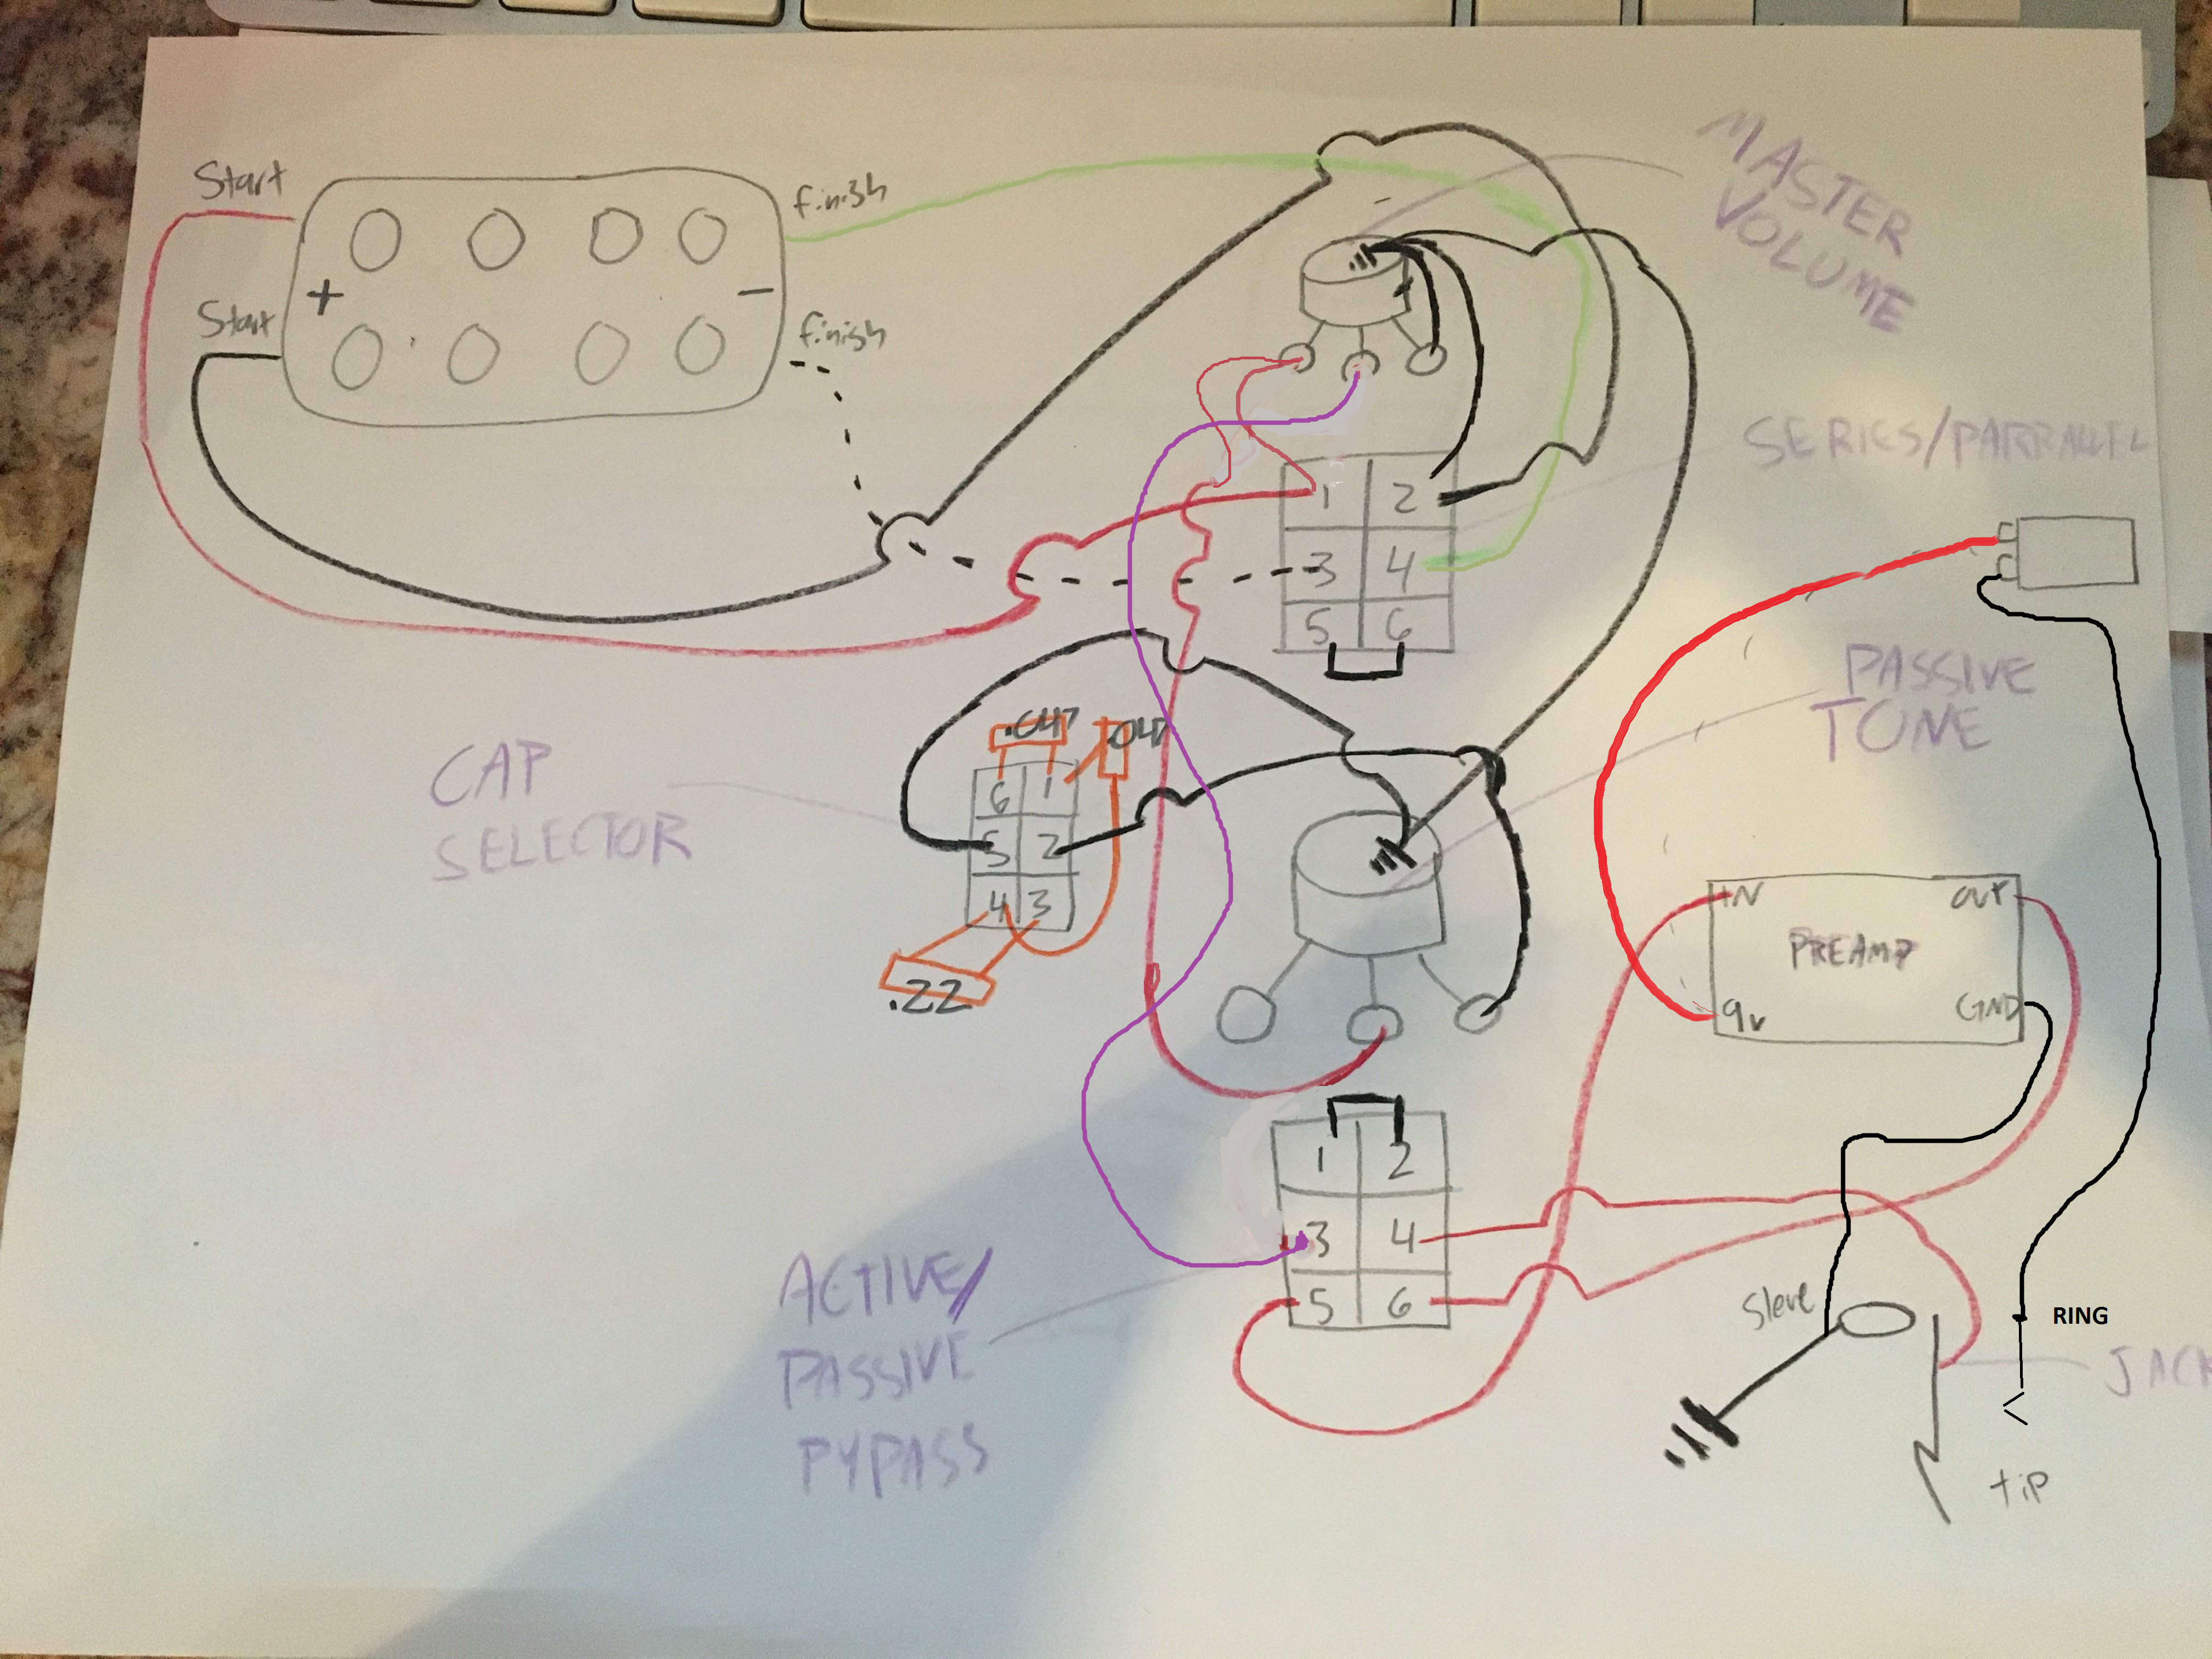 Start
finish
+
-
Start
finish
MASTER
VOLUME
SERIES/PARRALLEL
1 2
3 4
5 6
PASSIVE
TONE
CAP
SELECTOR
.047
.047
6 1
5 2
4 3
.22
+N
OUT
PREAMP
9v
GND
1 2
3 4
5 6
ACTIVE/
PASSIVE
PYPASS
Sleve
RING
JACK
tip